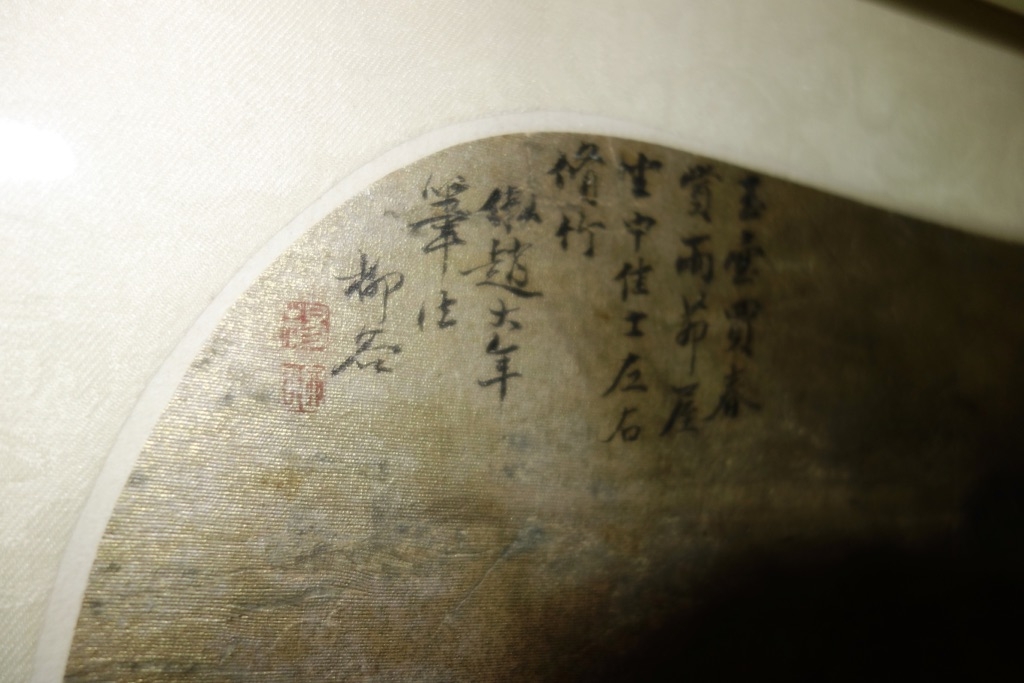 玉壺買春
賞雨茆屋
坐中佳士左右
脩竹
倣趙大年
筆法
柳谷